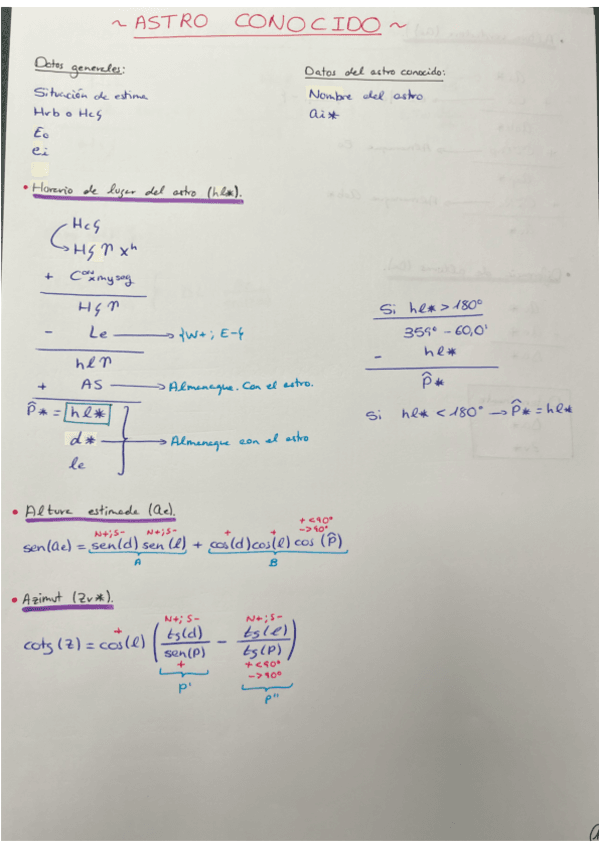 ~ ASTRO CONOCIDO ~
Datos generales:
Situación de estima
Hrb o HcG
Eo
ei
Datos del astro conocido:
Nombre del astro
ai*
• Horario de lugar del astro (hl*).
HcG
HG♈ xʰ
+ Cᵒⁿ x m y seg
HG♈
- Le → {W+; E-}
hl♈
+ AS → Almanaque. Con el astro.
P̂* = hl*
d* → Almanaque con el astro
le
Si hl* > 180°
359° - 60,0'
- hl*
P̂*
Si hl* < 180° → P̂* = hl*
• Altura estimada (ae).
N+; S- N+; S- + + + <90°
- >90°
sen(ae) = sen(d) sen(l) + cos(d) cos(l) cos(P̂)
A B
• Azimut (Zv*).
N+; S- N+; S-
cotg(z) = cos(l) ( tg(d) / sen(P) - tg(l) / tg(P) )
+ + + <90°
- >90°
P' P''